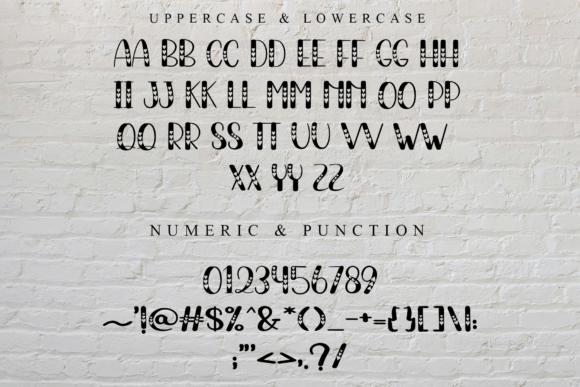 UPPERCASE & LOWERCASE
AA BB CC DD EE FF GG HH
II JJ KK LL MM NN OO PP
QQ RR SS TT UU VV WW
XX YY ZZ
NUMERIC & PUNCTION
0123456789
~'!@#$%^&*()_-+={}[]\|:
;"'<>,.?/